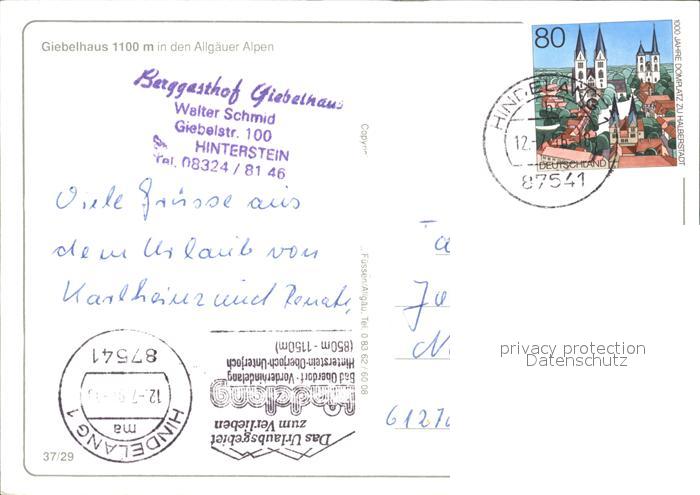 Giebelhaus 1100 m in den Allgäuer Alpen
Berggasthof Giebelhaus
Walter Schmid
Giebelstr. 100
HINTERSTEIN
Tel. 08324 / 81 46
80
1000 JAHRE DOMPLATZ ZU HALBERSTADT
DEUTSCHLAND
HINDELANG
12.
87541
Viele Grüsse aus
dem Urlaub von
Karlheinz und Renate,
Füssen/Allgäu, Tel. 0 83 62 / 60 08
privacy protection
Datenschutz
6127
87541
12.-7.
ma
HINDELANG 1
Das Urlaubsgebiet
zum Verlieben
Hindelang
Bad Oberdorf · Vorderhindelang
Hinterstein-Oberjoch-Unterjoch
(850m - 1150m)
37/29